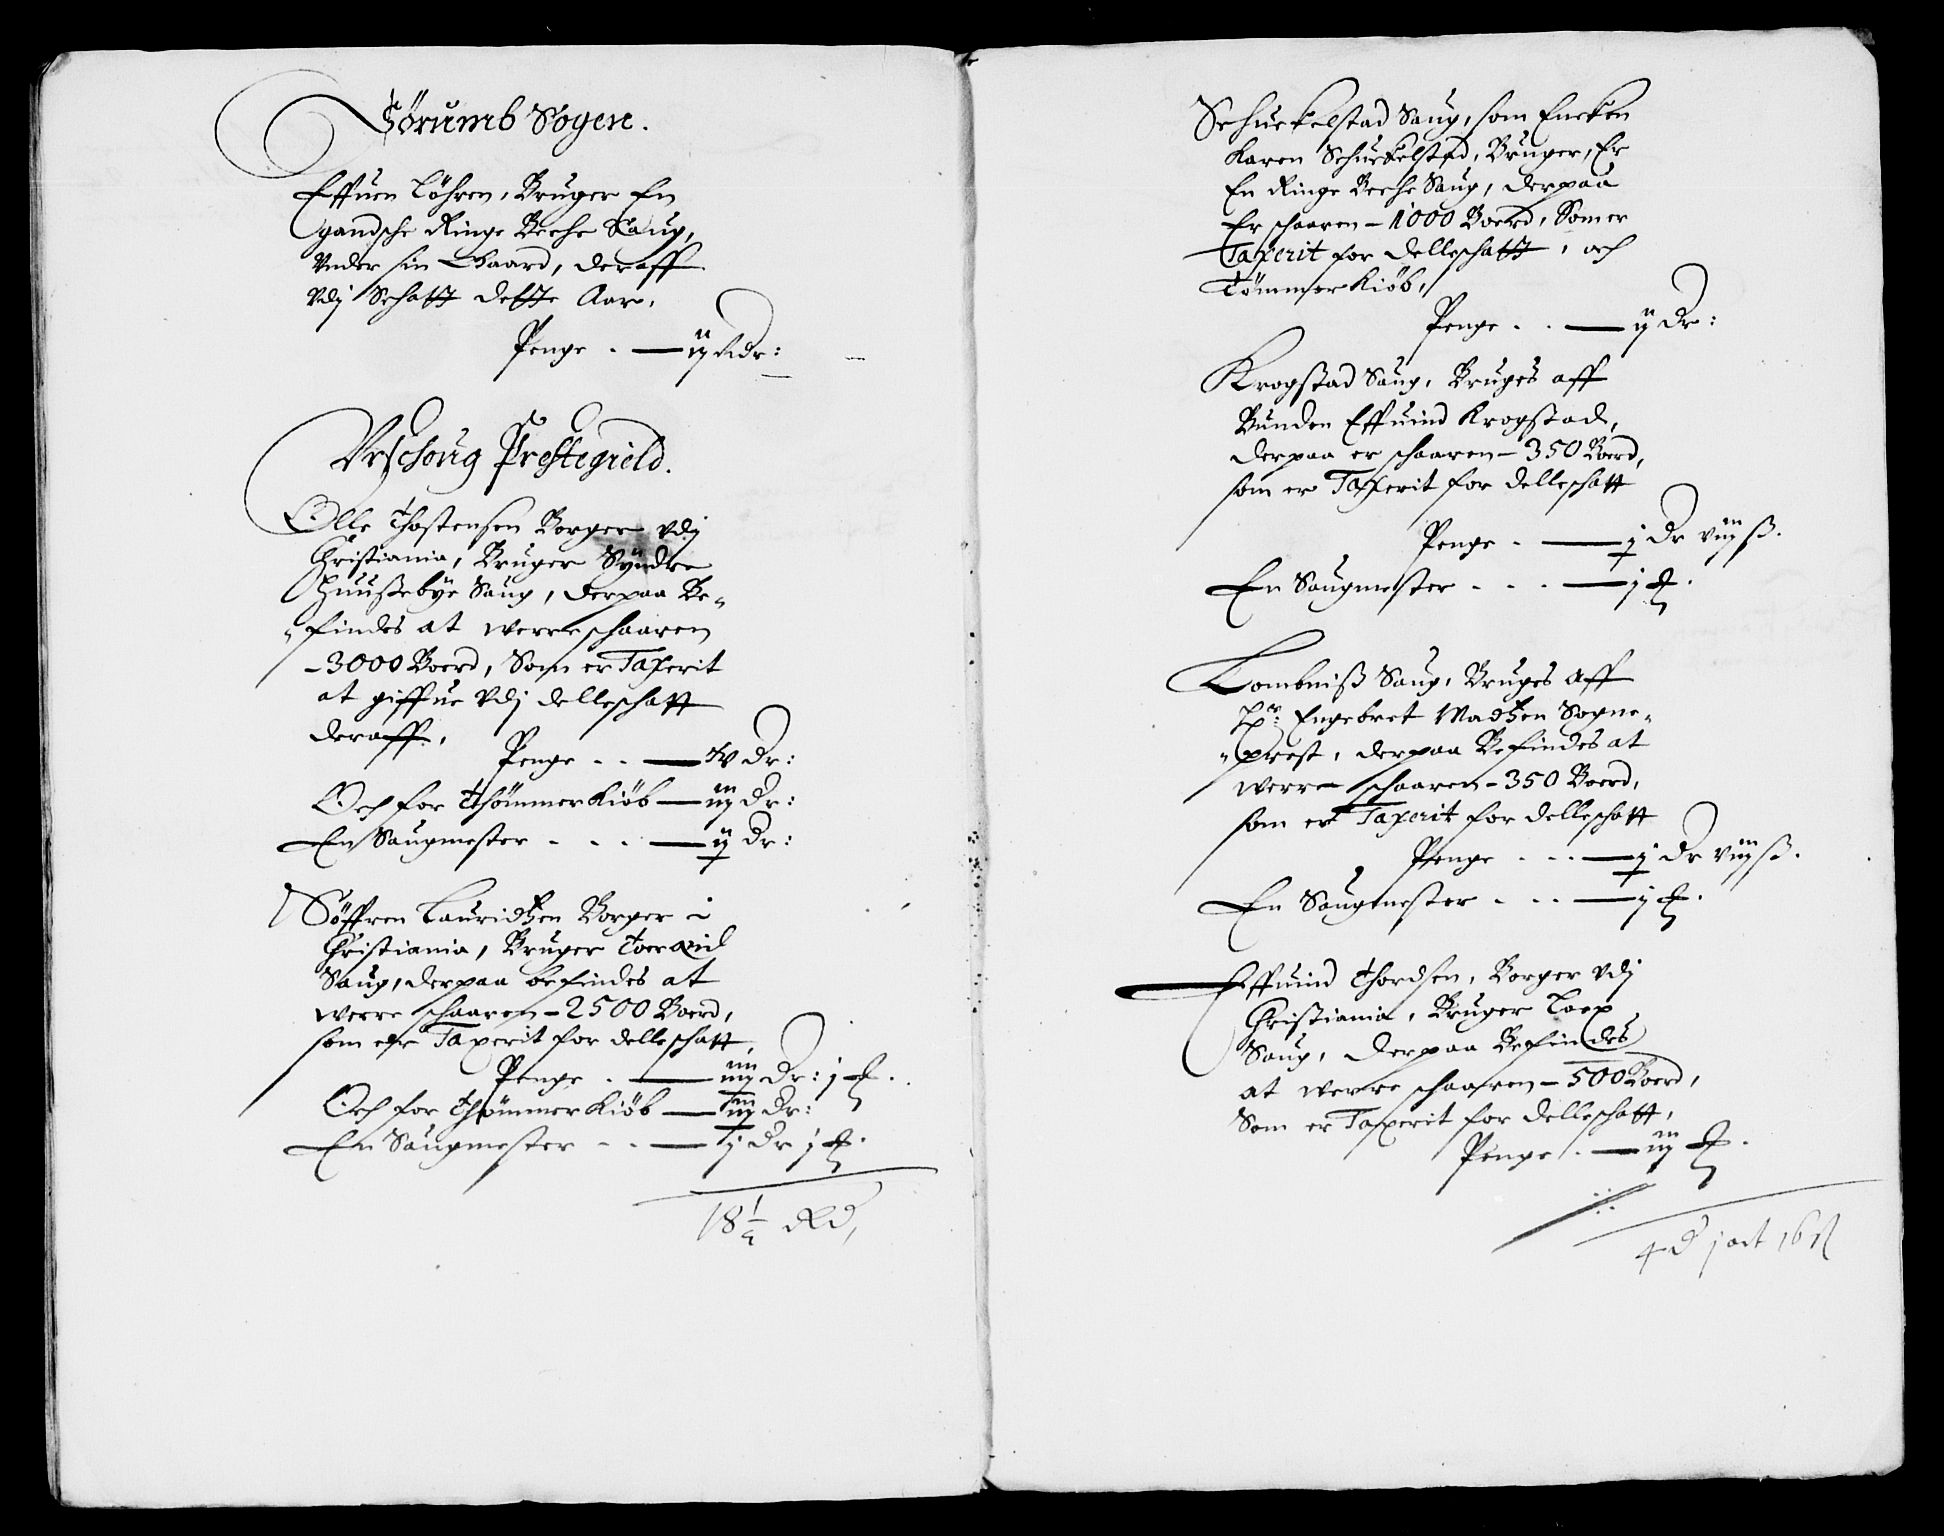 Sørumb Sogen.
Effuen Løhren, Bruger En
gandsche Ringe Beche Saug,
Vnder sin Gaard, deraff
Vdj Schatt dette Aar,
Penge . — ij Rdr:
Vrschoug Prestegield.
Olle Thostensen Borger Vdj
Christiania, Bruger Syndre
Huussebye Saug, derpaa Be-
findes at werre schaaren
- 3000 Boerd, Som er Taxerit
at giffue Vdj delleschatt
deraff,
Penge . . — Dr:
Och for Thømmer Kiøb — iij Dr:
En Saugmester . . . — ij Dr:
Søffren Lauridtzen Borger i
Christiania, Bruger
Saug, derpaa befindes at
werre schaaren - 2500 Boerd,
som er Taxerit for delleschatt,
Penge . — iiij Dr: j
Och for Thømmer Kiøb — Dr:
En Saugmester . . — j Dr j
18 1/2 Rd,
Schuckelstad Saug, som Encken
Karen Schuckelstad, Bruger, Er
En Ringe Beche Saug, derpaa
Er schaaren - 1000 Boerd, Som er
Taxerit for delleschatt, och
Tømmer Kiøb,
Penge . . — ij Dr:
Krogstad Saug, Bruges aff
Bunden Effuind Krogstad,
derpaa er schaaren - 350 Boerd,
som er Taxerit for delleschatt
Penge . — j Dr viij ß.
En Saugmester . . . — j
Lombniß Saug, Bruges aff
Hr: Engebret Madtzen Sogne-
prest, derpaa Befindes at
werre schaaren - 350 Boerd,
som er Taxerit for delleschatt
Penge . . . — j Dr viij ß.
En Saugmester . . . — j
Effuind Thordsen, Borger Vdj
Christiania, Bruger Toep
Saug, derpaa Befindes
at werre schaaren - 500 Boerd,
Som er Taxerit for delleschatt,
Penge . — iij
4 d j ort 16 ß